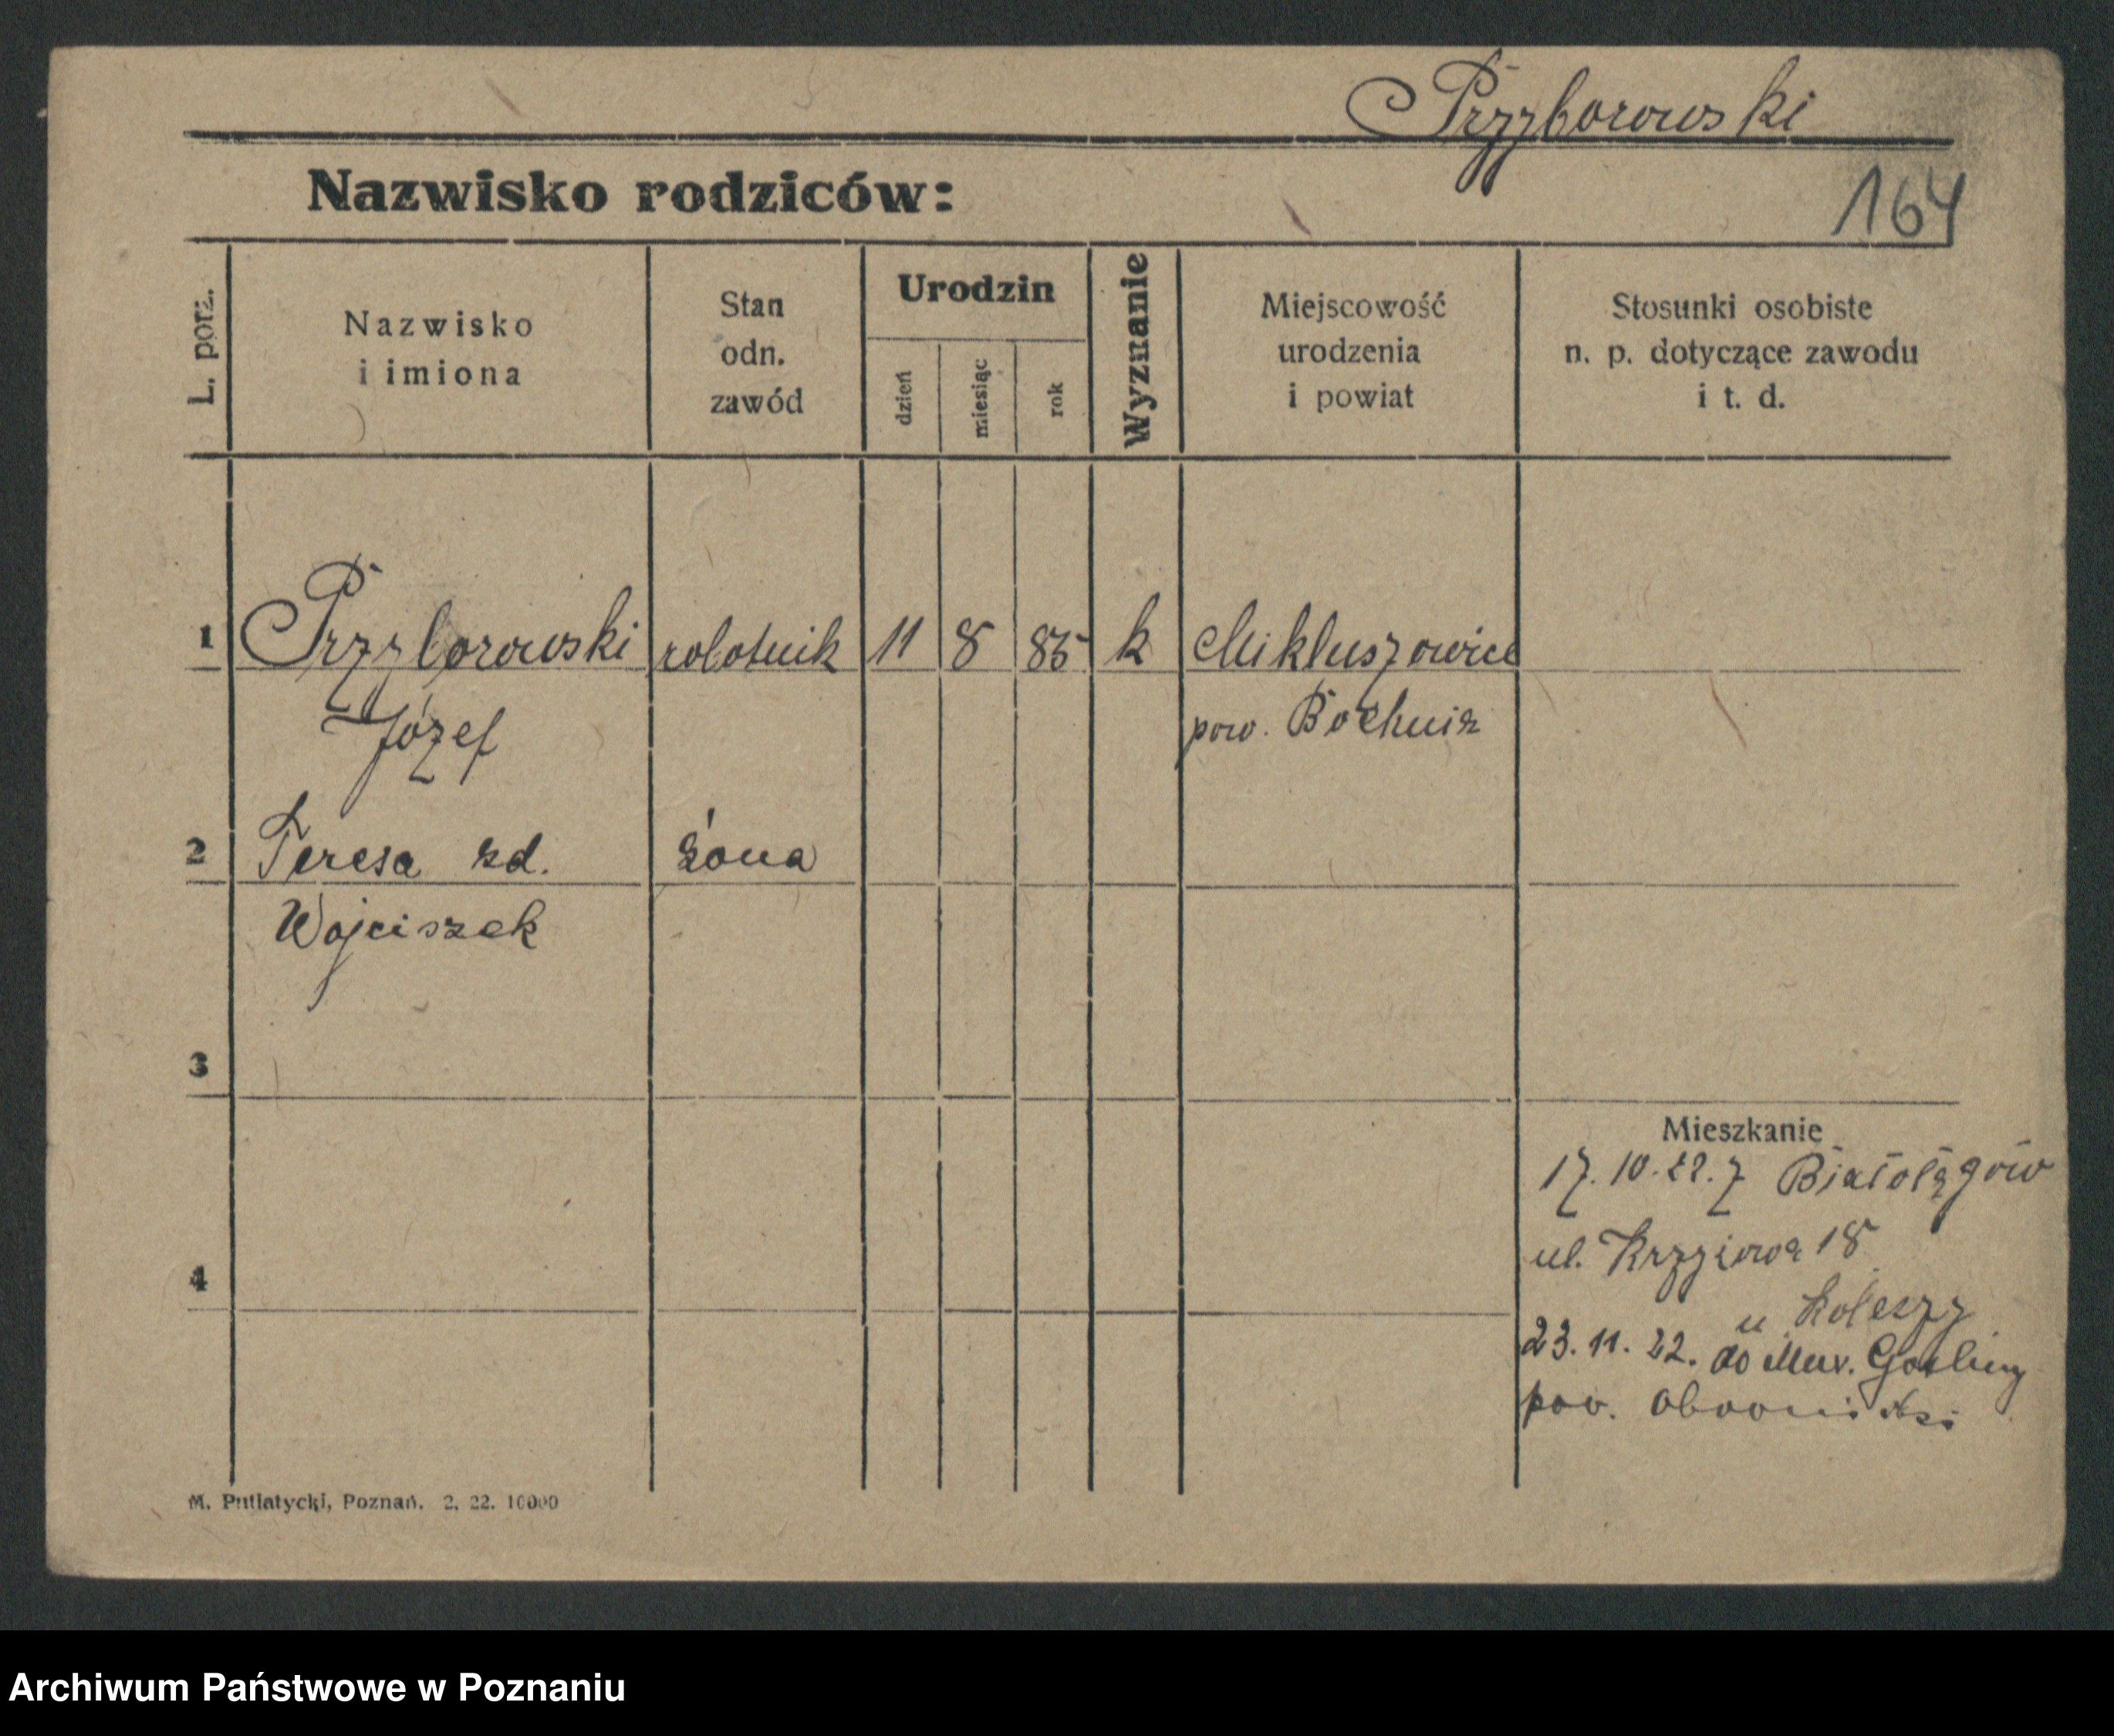 Przyborowski
Nazwisko rodziców:
164
L. porz.
Nazwisko
i imiona
Stan
odn.
zawód
Urodzin
dzień
miesiąc
rok
Wyznanie
Miejscowość
urodzenia
i powiat
Stosunki osobiste
n. p. dotyczące zawodu
i t. d.
1 Przyborowski robotnik 11 8 85 k Mikluszowice
Józef pow. Bochnia
2 Teresa zd. żona
Wojciszek
3
Mieszkanie
17. 10. 22. z Białołęgów
ul. Krzyżowa 18
4
u
23. 11. 22. do Mur. Gośliny
pow. obornicki
M. Putiatycki, Poznań. 2. 22. 10000
Archiwum Państwowe w Poznaniu